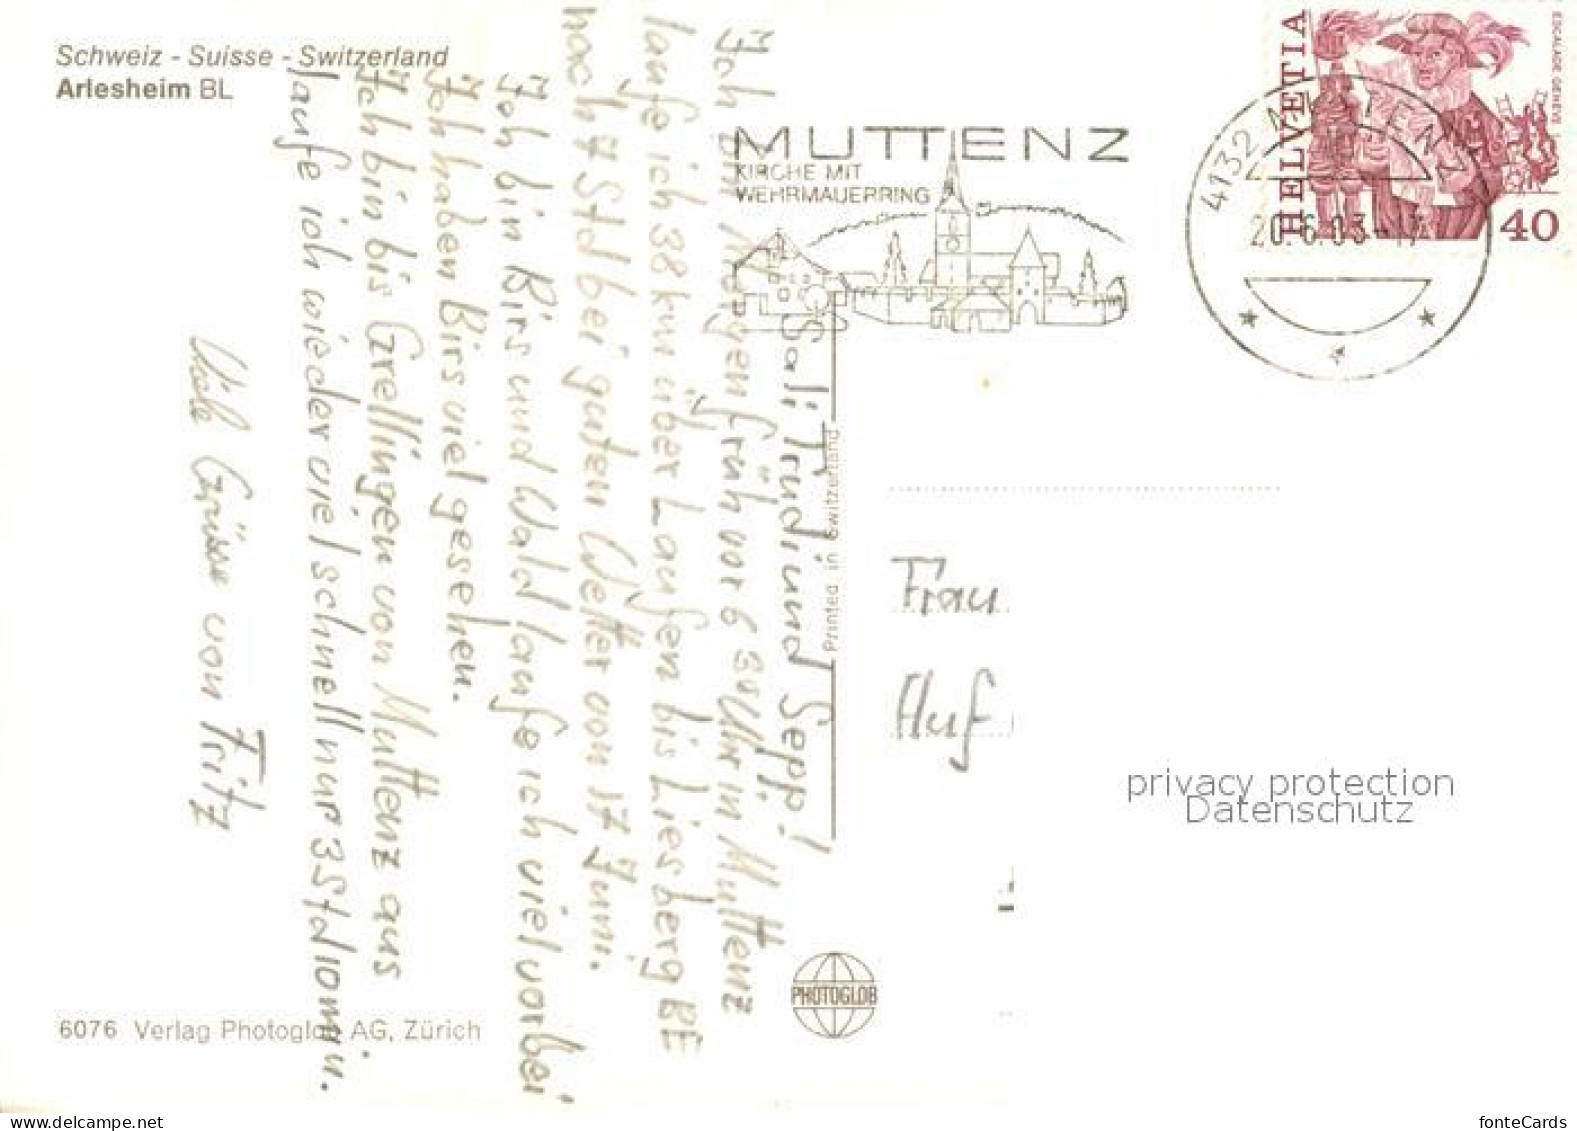 Schweiz - Suisse - Switzerland
Arlesheim BL
MUTTENZ
KIRCHE MIT
WEHRMAUERRING
4132 MUTTENZ 1
20.6.83-17
HELVETIA
ESCALADE GENÈVE
40
Sali Trudi und Seppi!
Ich bin Morgen früh vor 6 30 Uhr in Muttenz
laufe ich 38 km über Laufen bis Liesberg BE
nach 7 Std bei guten Wetter von 17 Juni.
Ich bin Birs und Wald laufe ich viel vorbei
Ich haben Birs viel gesehen.
Ich bin bis Grellingen von Muttenz aus
laufe ich wieder viel schnell nur 3 Std 10 min.
Viele Grüsse von Fritz
Printed in Switzerland
Frau
Huf
privacy protection
Datenschutz
PHOTOGLOB
6076 Verlag Photoglob AG, Zürich
www.delcampe.net
fonteCards